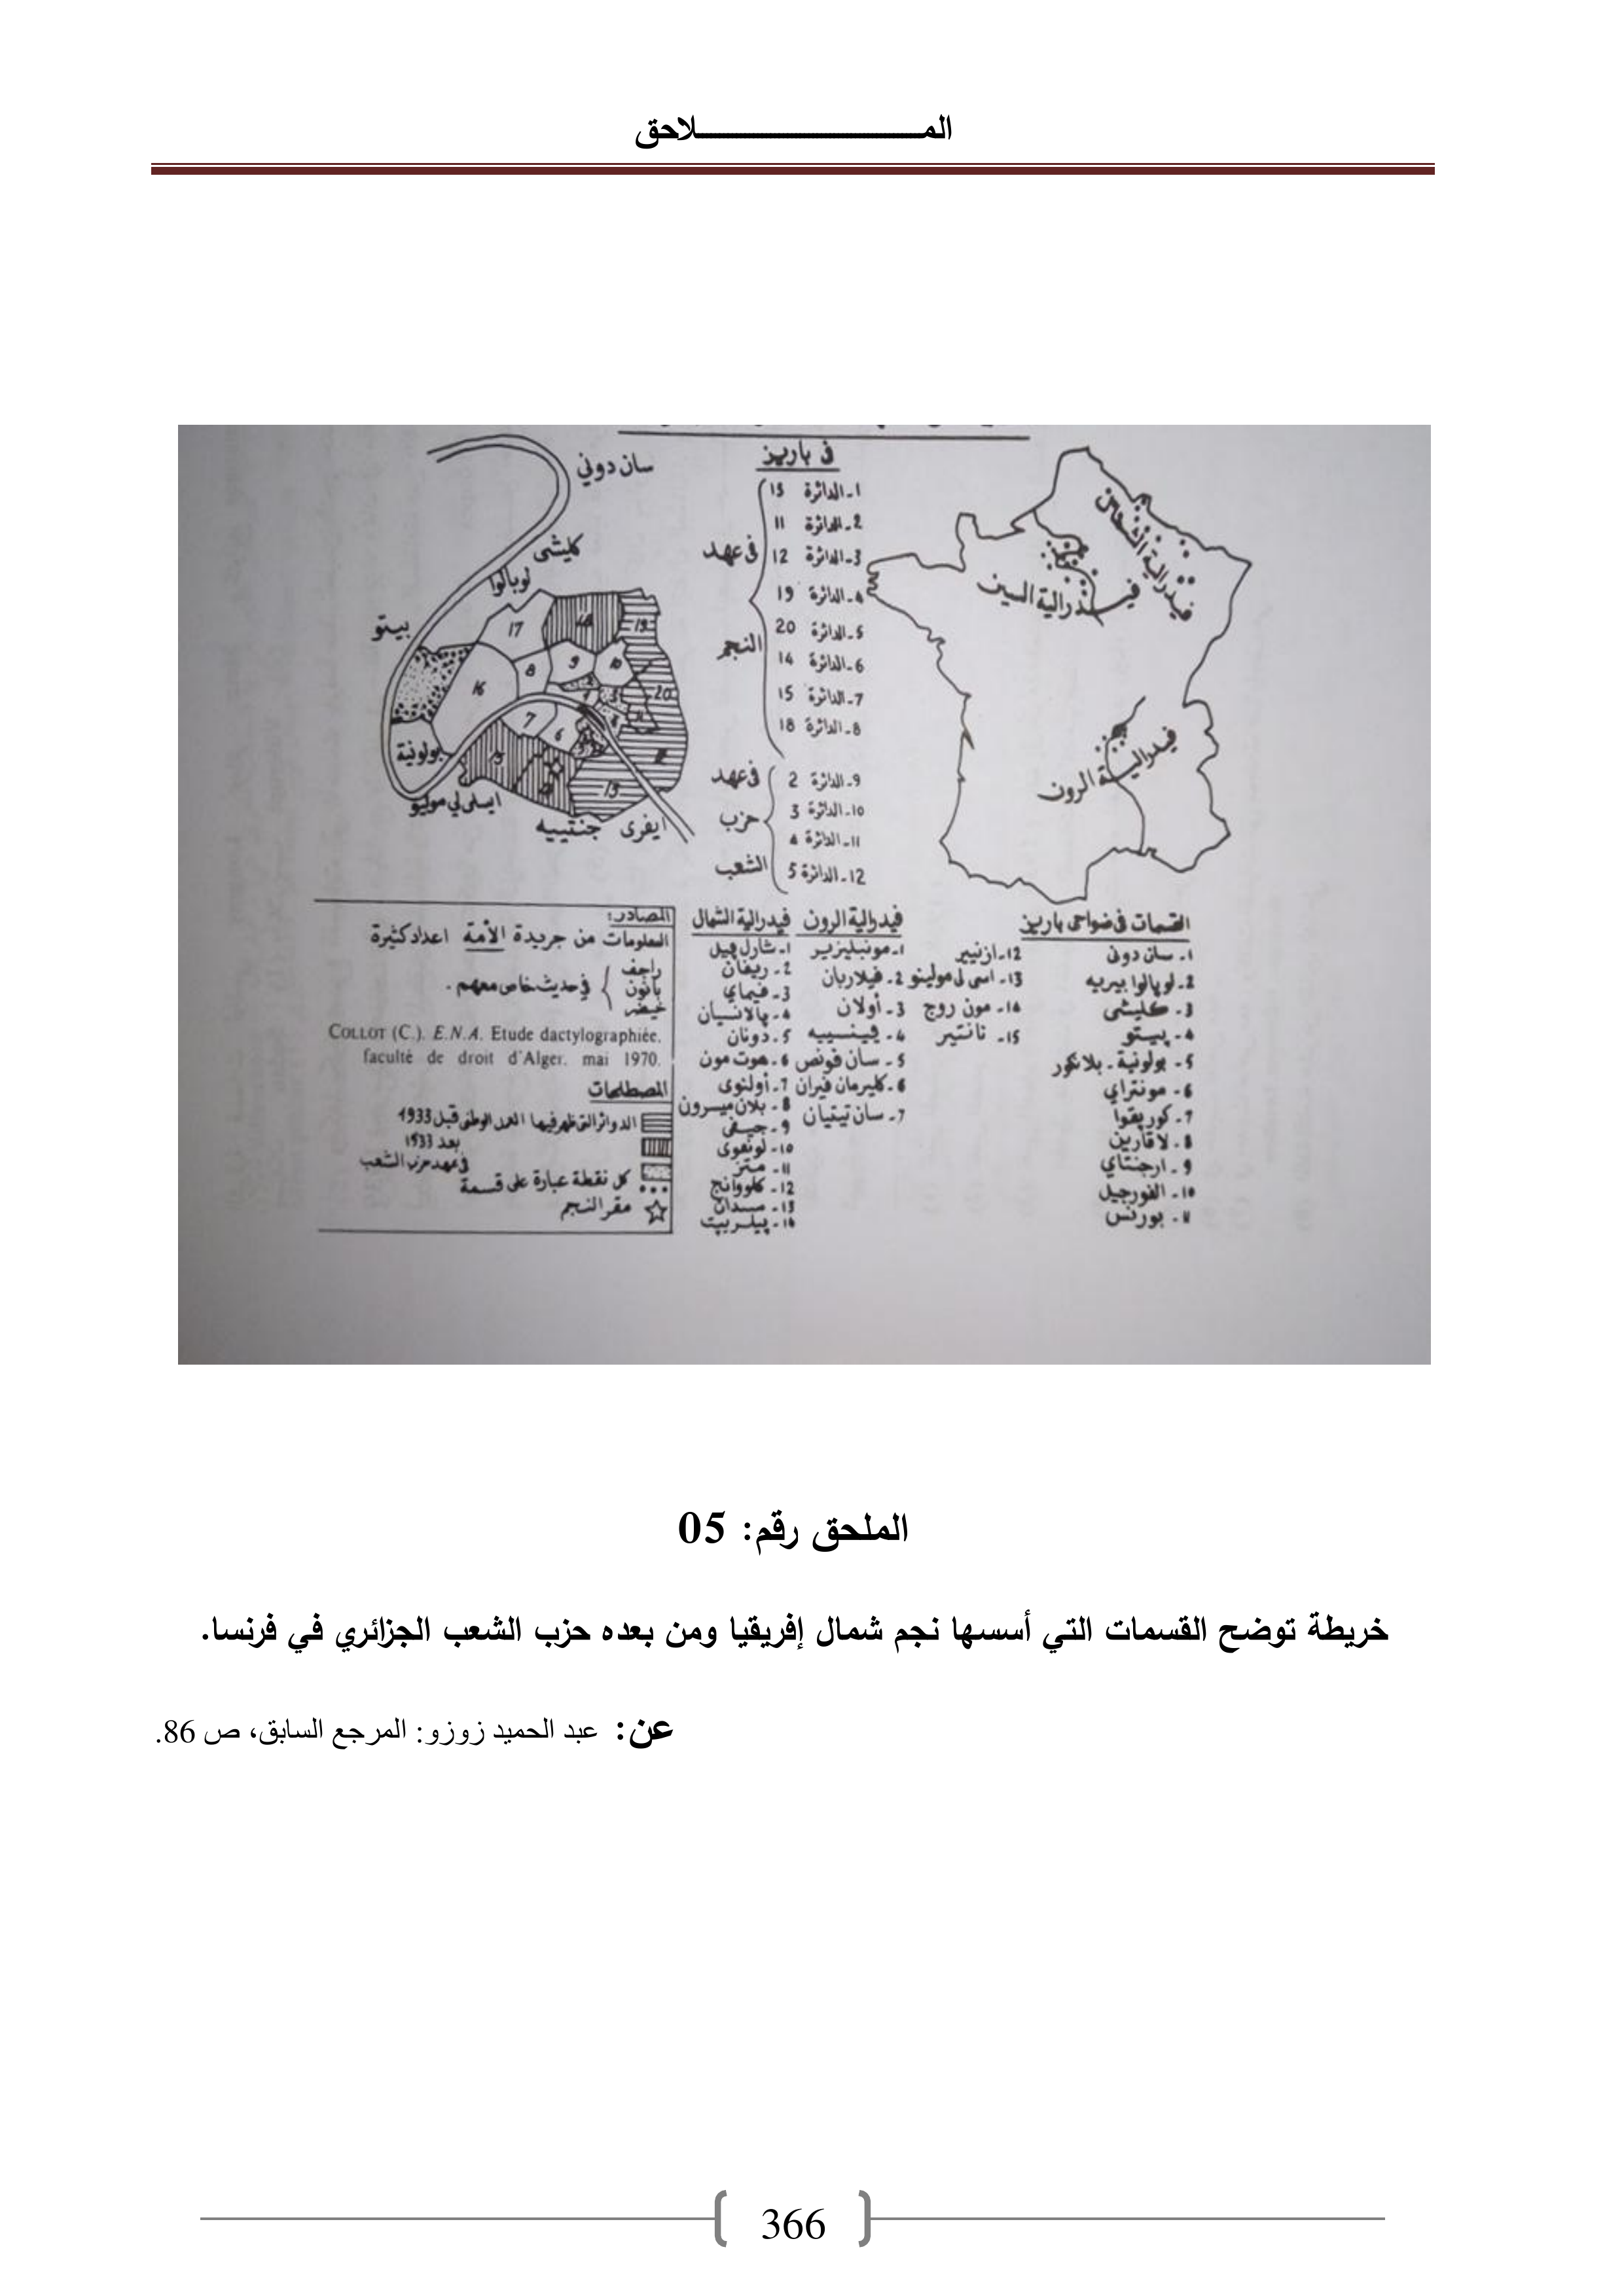 الملاحق
في باريز
1- الدائرة 13
2- الدائرة 11
3- الدائرة 12
4- الدائرة 19
5- الدائرة 20
6- الدائرة 14
7- الدائرة 15
8- الدائرة 18
في عهد
النجم
9- الدائرة 2
10- الدائرة 3
11- الدائرة 4
12- الدائرة 5
في عهد
حزب
الشعب
فيدرالية الشمال
فيدرالية السين
فيدرالية الرون
سان دوني
كليشى
لوبالوا
بيتو
بولونية
ايسلي لي موليو
ايفرى جنتييه
17
18
19
16
8
9
10
20
7
6
15
13
القسمات في ضواحى باريز
1- سان دونى
2- لوبالوا بيريه
3- كليشى
4- بيتو
5- بولونية - بلانكور
6- مونتراي
7- كوربقوا
8- لاقارين
9- ارجنتاي
10- الفورجيل
11- بورنس
12- ازنيير
13- اسى لى مولينو
14- مون روج
15- نانتير
فيدرالية الرون
1- مونبليزير
2- فيلاربان
3- أولان
4- فينسييه
5- سان فونص
6- كليرمان فيران
7- سان تيتيان
فيدرالية الشمال
1- شارل فيل
2- ريفان
3- فيماي
4- پالانسيان
5- دونان
6- هوت مون
7- أولنوى
8- بلان ميسرون
9- جيفى
10- لونغوى
11- متز
12- كلووانج
13- سدان
14- پيلربيت
المصادر:
المعلومات من جريدة الأمة اعداد كثيرة
راجف
بانون
خيضر
في حديث خاص معهم .
COLLOT (C.). E.N.A. Etude dactylographiée.
faculté de droit d'Alger. mai 1970.
المصطلحات
الدوائر التى ظهر فيها العمل الوطنى قبل 1933
بعد 1933
في عهد حزب الشعب
كل نقطة عبارة على قسمة
مقر النجم
الملحق رقم: 05
خريطة توضح القسمات التي أسسها نجم شمال إفريقيا ومن بعده حزب الشعب الجزائري في فرنسا.
عن: عبد الحميد زوزو: المرجع السابق، ص 86.
366